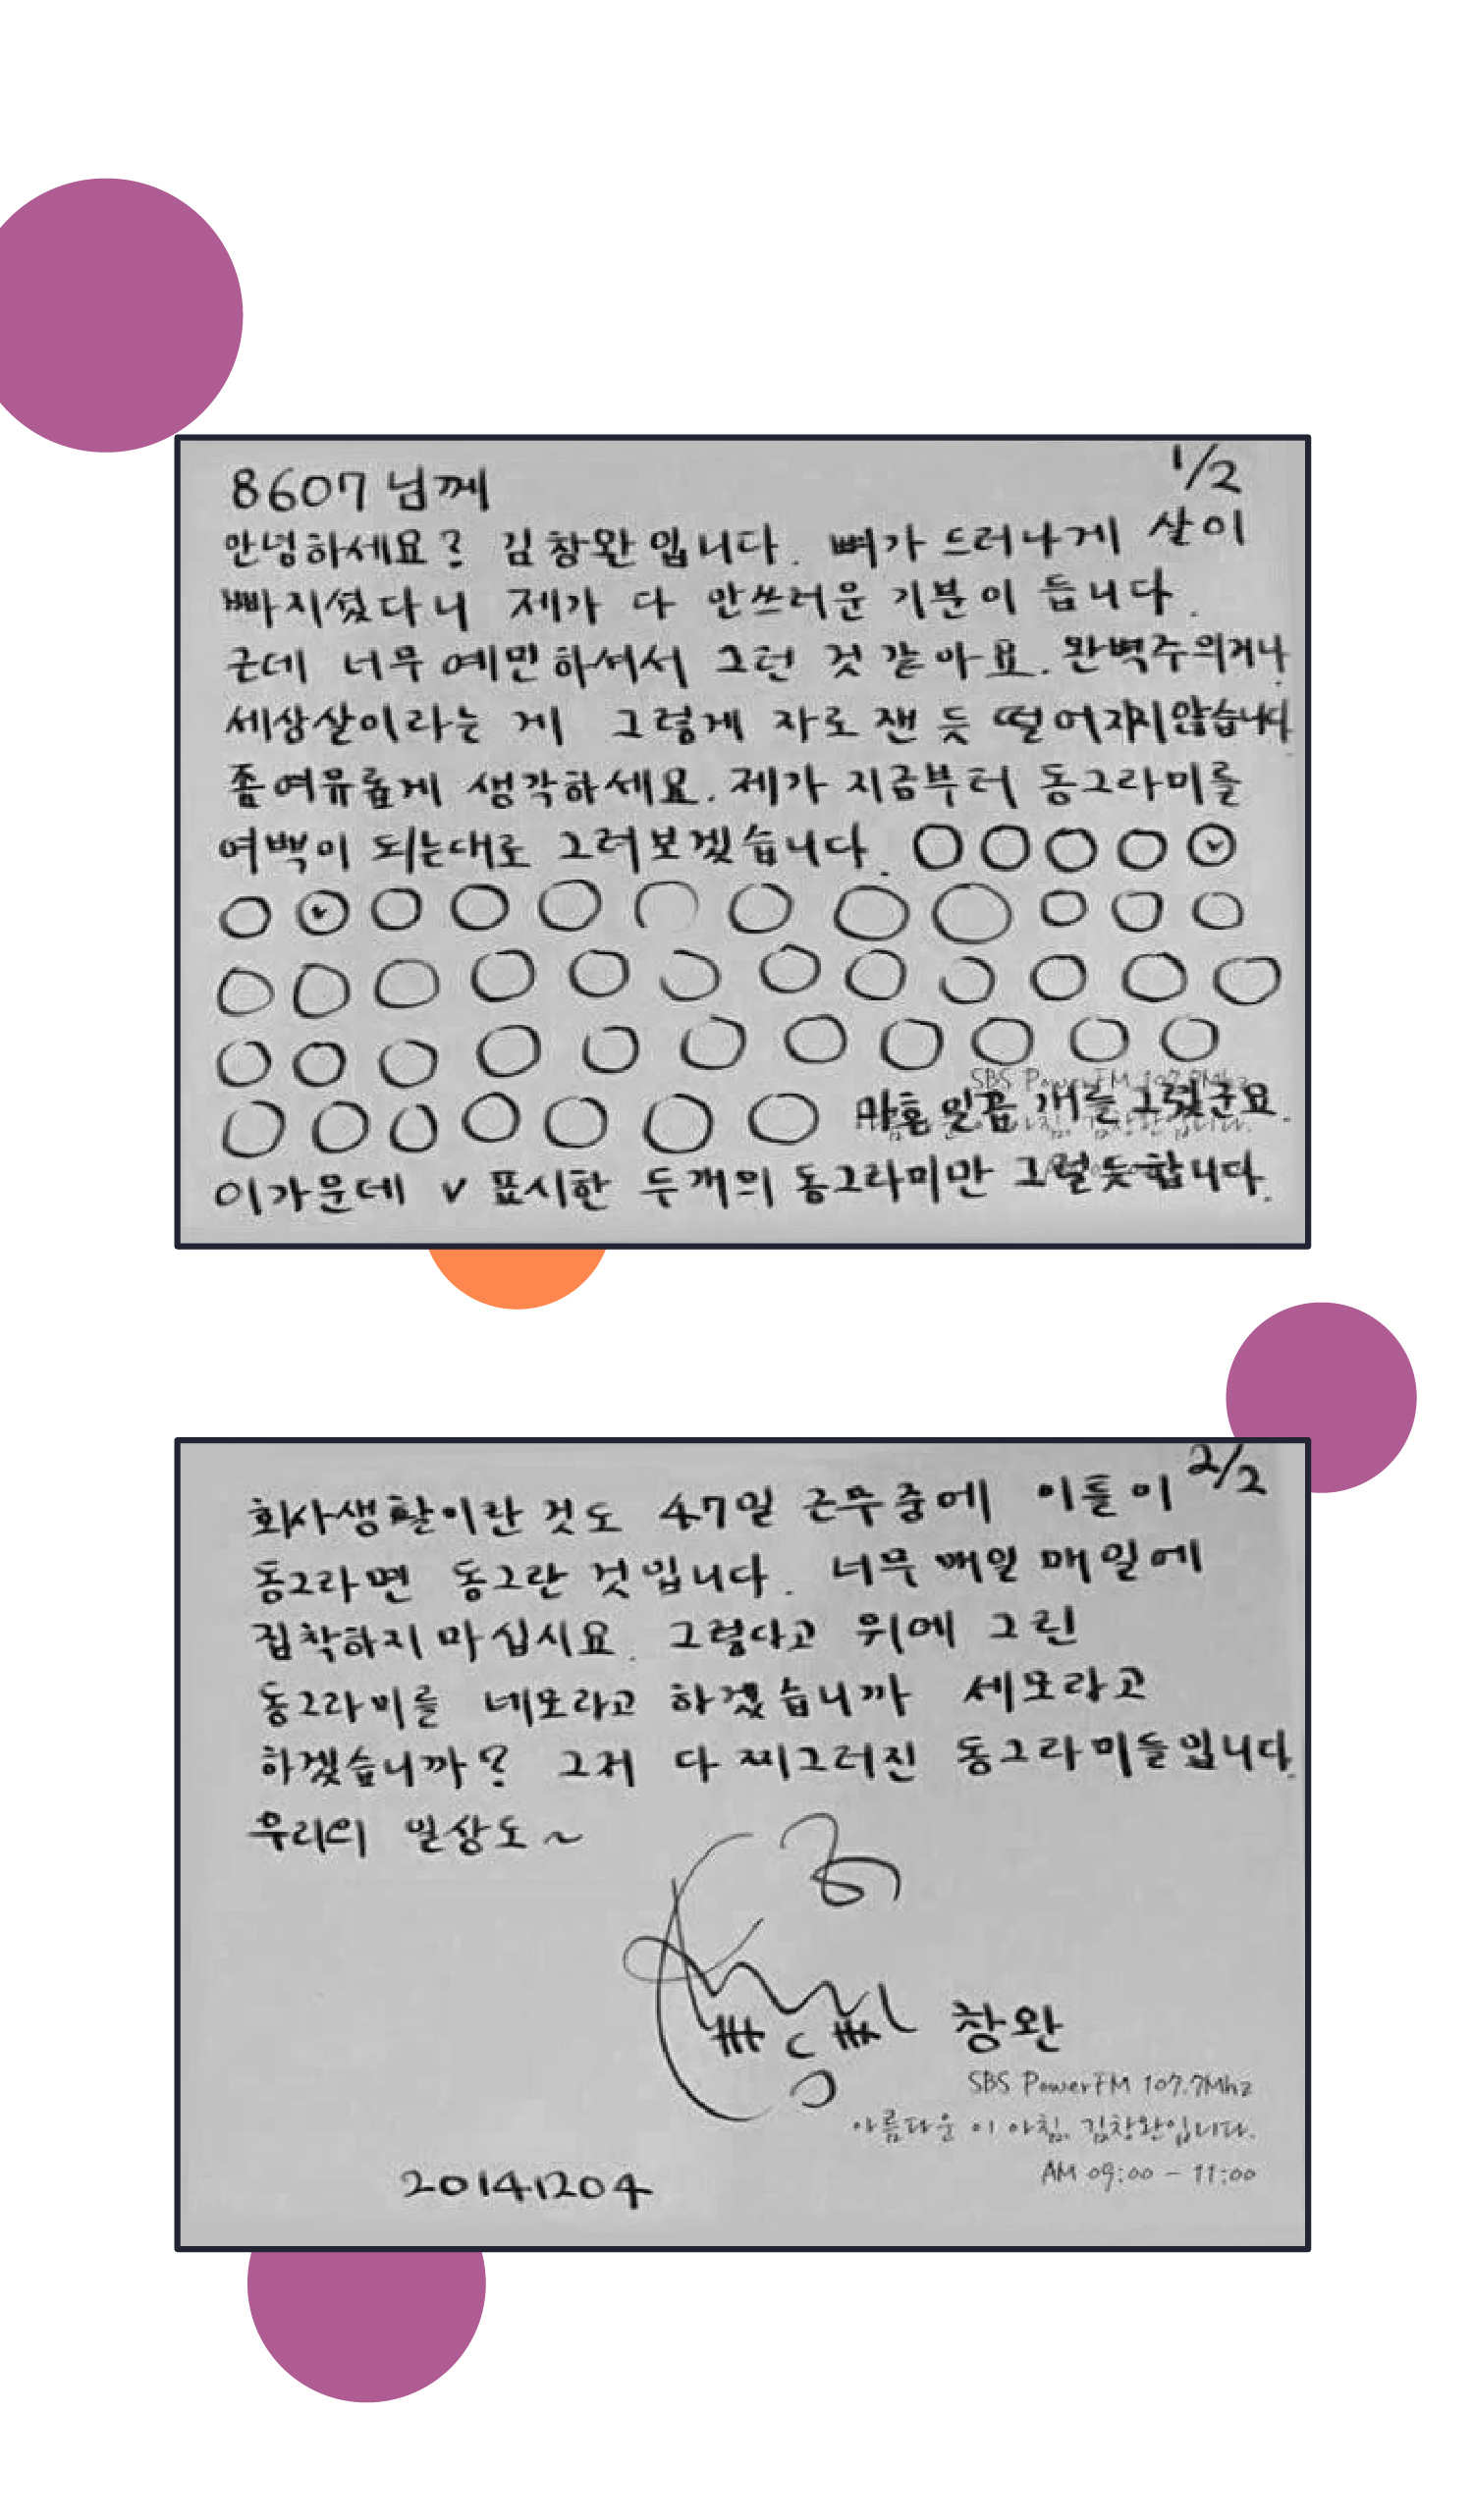 1/2
8607님께
안녕하세요? 김창완입니다. 뼈가 드러나게 살이
빠지셨다니 제가 다 안쓰러운 기분이 듭니다.
근데 너무 예민하셔서 그런 것 같아요. 완벽주의거나
세상살이라는 게 그렇게 자로 잰 듯 떨어지지 않습니다
좀 여유롭게 생각하세요. 제가 지금부터 동그라미를
여백이 되는대로 그려보겠습니다.
마흔 일곱 개를 그렸군요.
이가운데 v 표시한 두개의 동그라미만 그럴듯합니다.
2/2
회사생활이란 것도 47일 근무중에 이틀이
동그라면 동그란 것입니다. 너무 매일 매일에
집착하지 마십시요. 그렇다고 위에 그린
동그라미를 네모라고 하겠습니까 세모라고
하겠습니까? 그저 다 찌그러진 동그라미들입니다.
우리의 일상도~
창완
SBS PowerFM 107.7Mhz
아름다운 이 아침. 김창완입니다.
AM 09:00 - 11:00
20141204